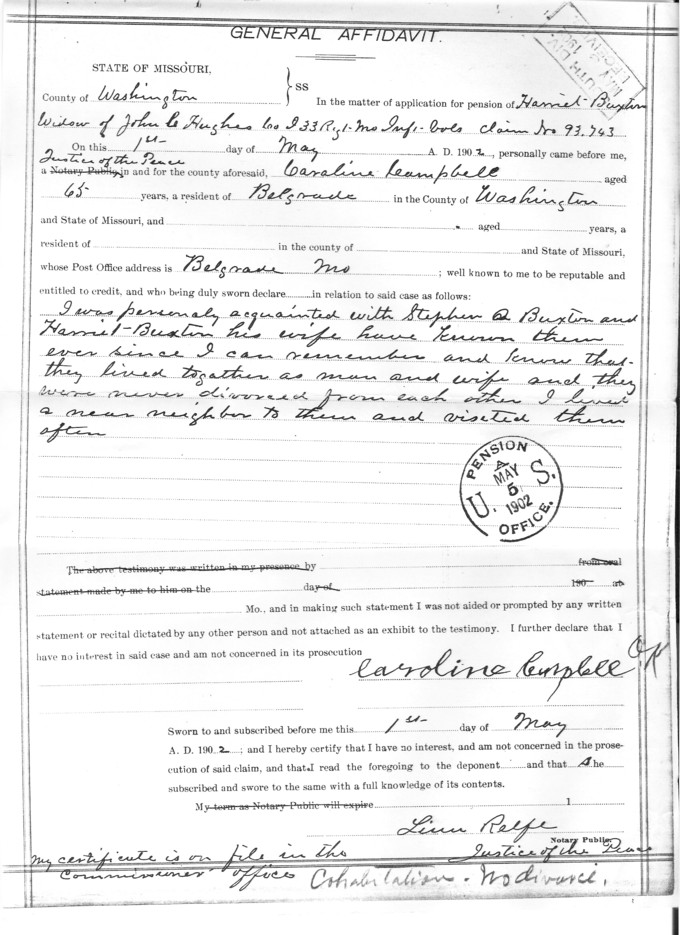 GENERAL AFFIDAVIT.
STATE OF MISSOURI,
County of Washington } SS
In the matter of application for pension of Harriet Buxton
Widow of John C Hughes Co I 33 Regt Mo Inft Vols claim No 93.743
On this 1st day of May A. D. 1902, personally came before me,
Justice of the Peace
a Notary Public, in and for the county aforesaid, Caroline Campbell aged
65 years, a resident of Belgrade in the County of Washington
and State of Missouri, and aged years, a
resident of in the county of and State of Missouri,
whose Post Office address is Belgrade Mo ; well known to me to be reputable and
entitled to credit, and who being duly sworn declare in relation to said case as follows:
I was personaly acquainted with Stephen Buxton and
Harriet Buxton his wife have known them
ever since I can remember and know that
they lived together as man and wife and they
were never divorced from each other I lived
a near neighbor to them and viseted them
often
PENSION
A
MAY
5
1902
U. S.
OFFICE.
The above testimony was written in my presence by from oral
statement made by me to him on the day of 190 at
Mo., and in making such statement I was not aided or prompted by any written
statement or recital dictated by any other person and not attached as an exhibit to the testimony. I further declare that I
have no interest in said case and am not concerned in its prosecution
Caroline Campbell OK
Sworn to and subscribed before me this 1st day of May
A. D. 1902; and I hereby certify that I have no interest, and am not concerned in the prose-
cution of said claim, and that I read the foregoing to the deponent and that she
subscribed and swore to the same with a full knowledge of its contents.
My term as Notary Public will expire 1
Linn Relfe
Notary Public.
my certificate is on file in the Justice of the Peace
Commissioner office Cohabitation - No divorce.